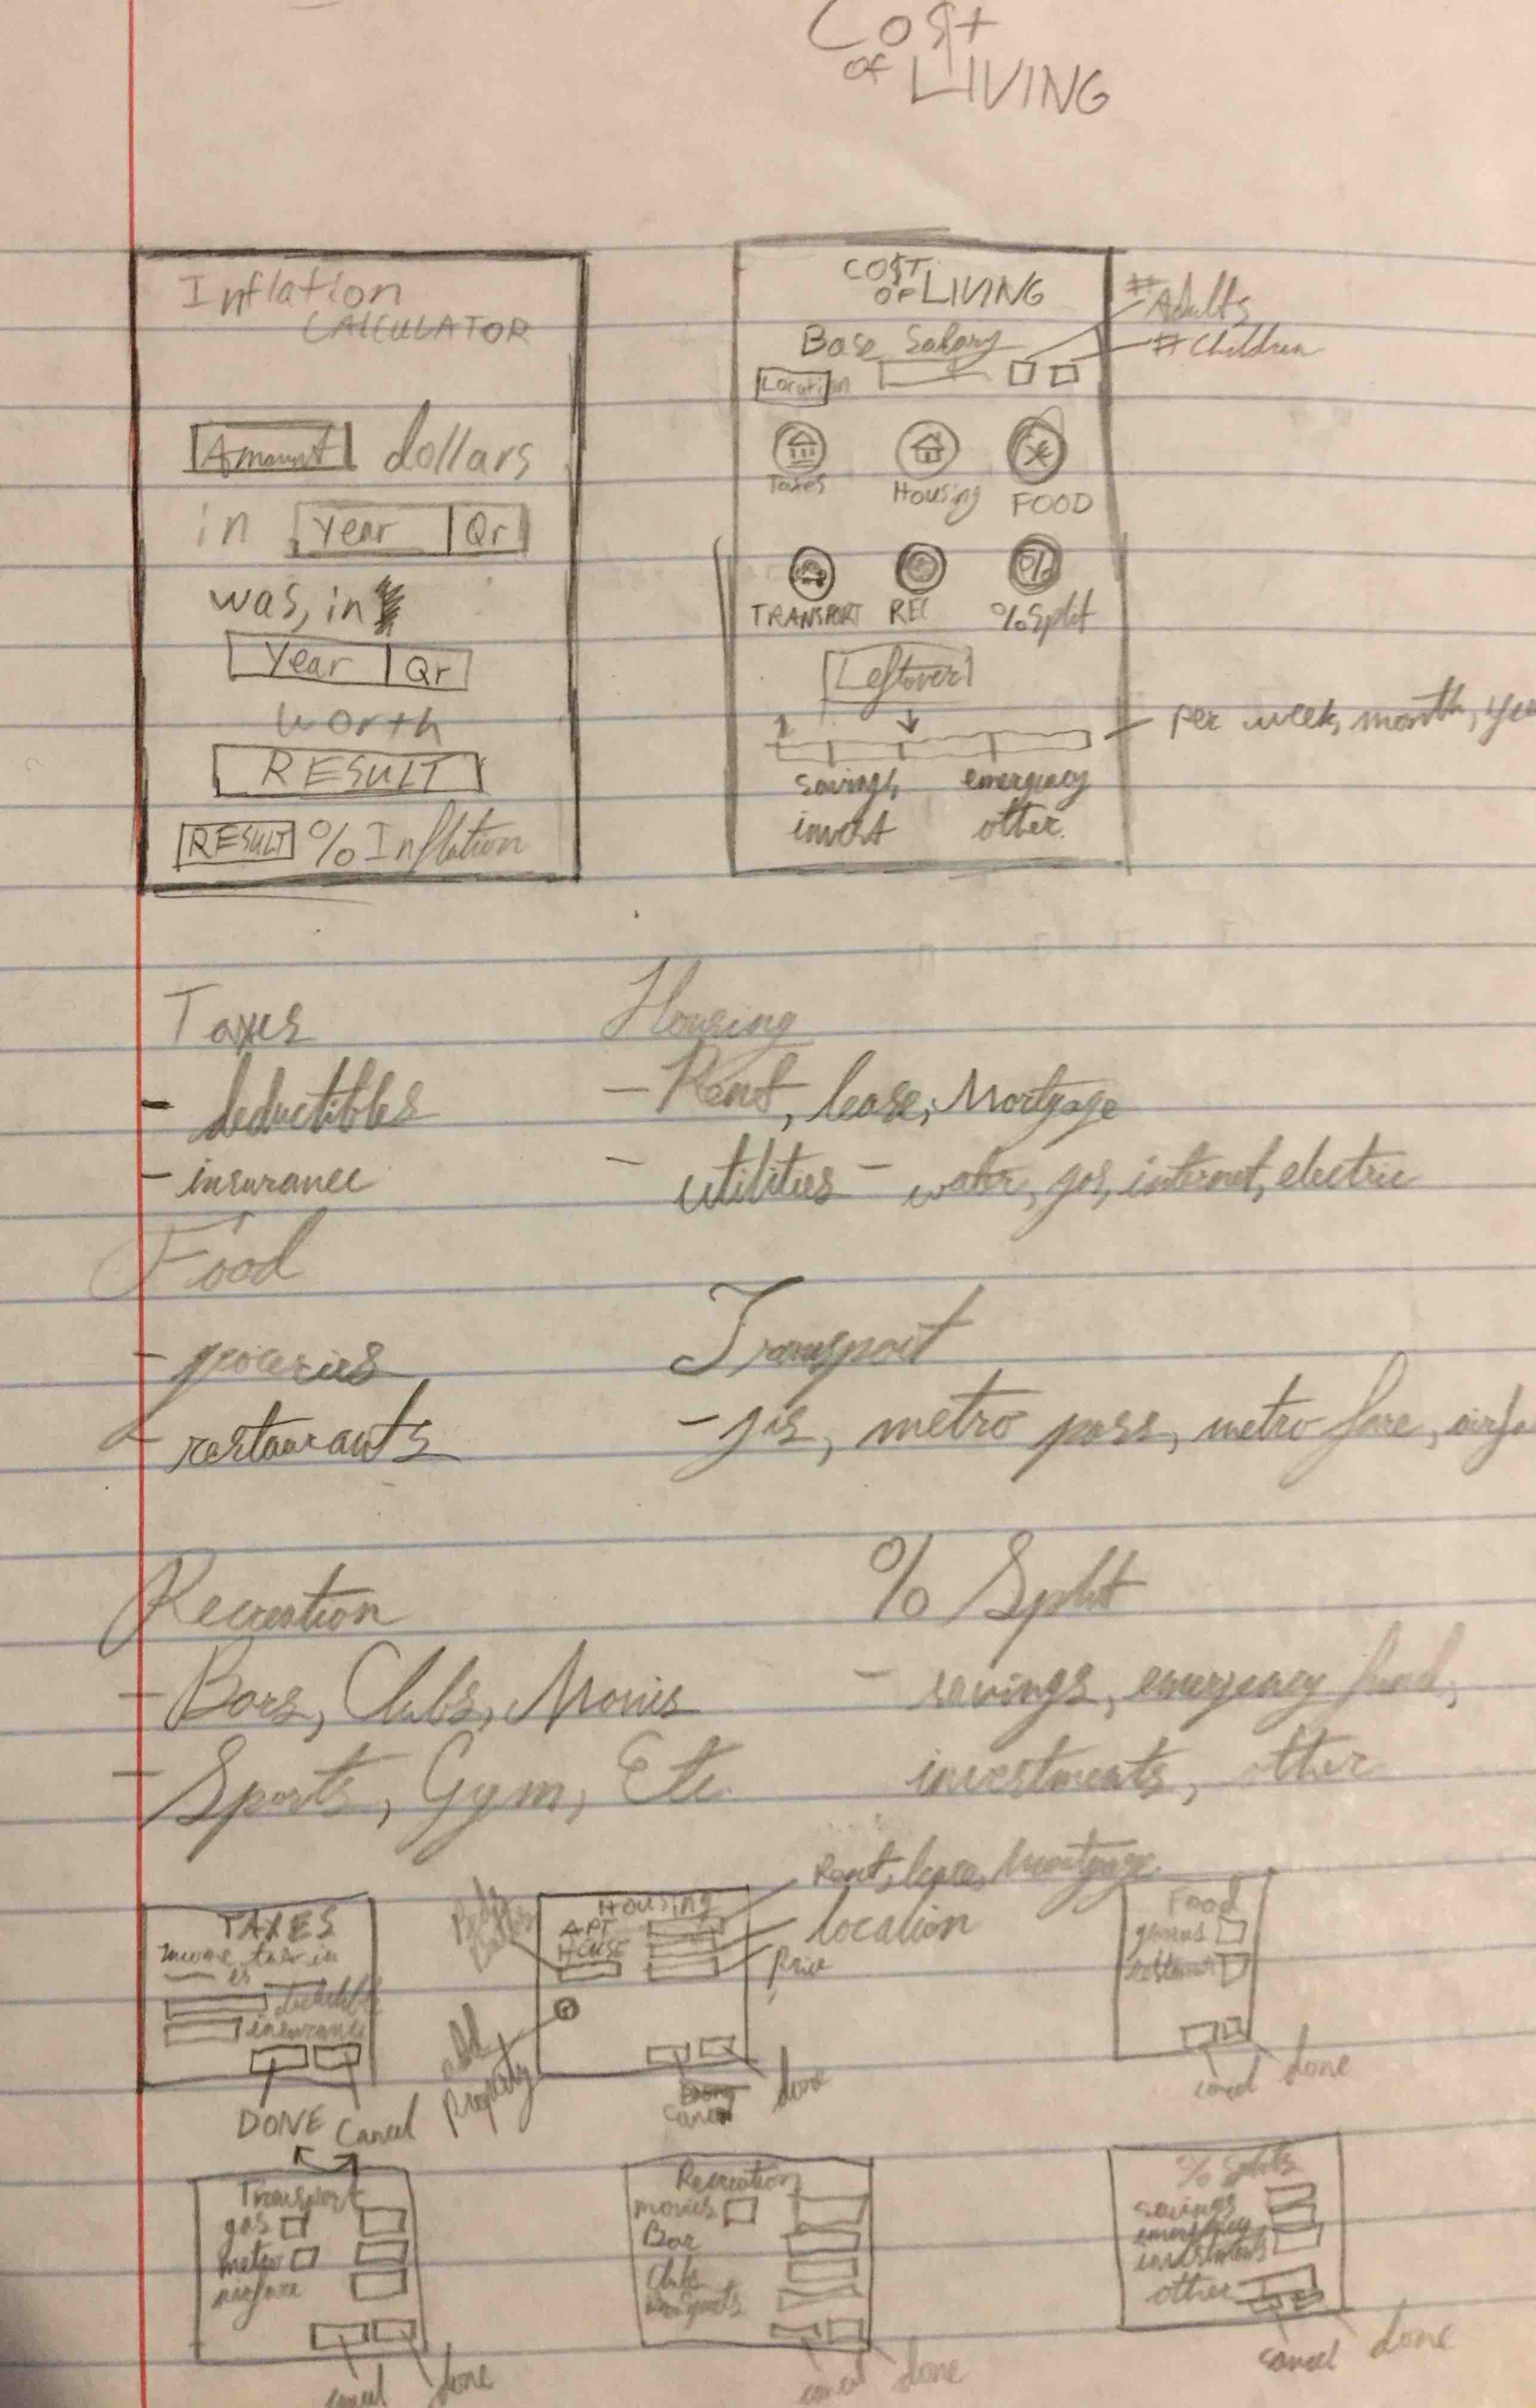 COST
OF LIVING
Inflation
CALCULATOR
Amount dollars
in Year Qr
was, in
Year Qr
worth
RESULT
RESULT % Inflation
COST
OF LIVING
Base Salary
Location
# Adults
# Children
Taxes Housing FOOD
TRANSPORT REC % Split
Leftover
per week, month,
savings, emergency
invest other
Taxes
- deductibles
- insurance
Housing
- Rent, lease, Mortgage
- utilities - water, gas, internet, electric
Food
- groceries
- restaurants
Transport
- gas, metro pass, metro fare,
Recreation
- Bars, Clubs, Movies
- Sports, Gym, Etc.
% Split
- savings, emergency fund,
investments, other
TAXES
Income tax in
is
insurance
DONE Cancel
Housing
APT
HOUSE
Rent, lease, Mortgage
location
Price
add
Property
cancel done
Food
cancel done
Transport
gas
metro
airfare
cancel done
Recreation
movies
Bar
Club
cancel done
% Splits
savings
emergency
investments
other
cancel done